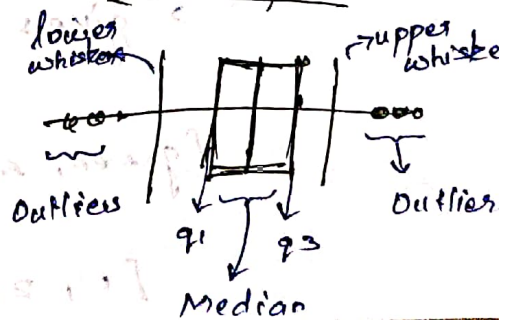 lower
whisker
upper
whiske
Outliers
Outlier
q1
q3
Median